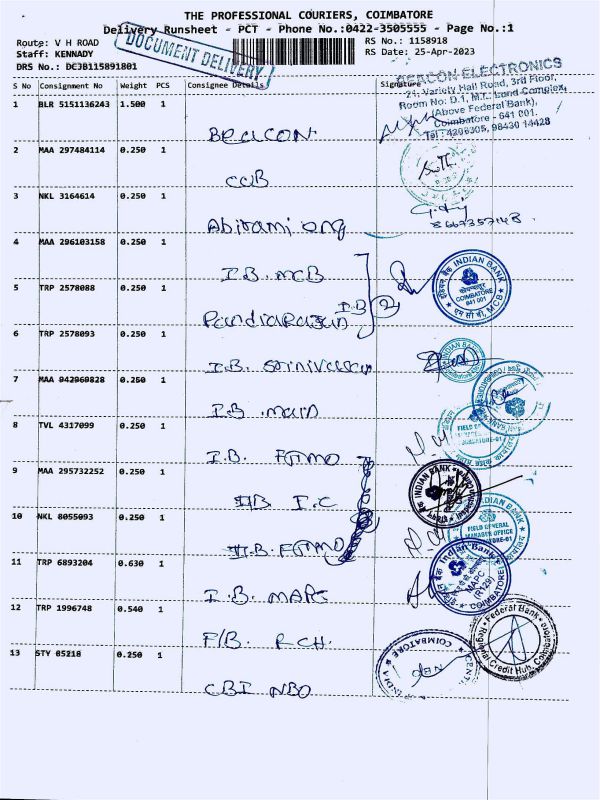 THE PROFESSIONAL COURIERS, COIMBATORE
Delivery Runsheet - PCT - Phone No.:0422-3505555 - Page No.:1
Route: V H ROAD
RS No.: 1158918
Staff: KENNADY
RS Date: 25-Apr-2023
DRS No.: DCJB115891801
DOCUMENT DELIVERY
S No Consignment No Weight PCS Consignee Details Signature
BEACON ELECTRONICS
21, Variety Hall Road, 3rd Floor,
Room No: D.1, M.T. Lond Complex,
(Above Federal Bank),
Coimbatore - 641 001.
Tel : 4208305, 98430 14428
1 BLR 5151136243 1.500 1
BEACON.
2 MAA 297484114 0.250 1
CUB
3 NKL 3164614 0.250 1
Abirami Org
4 MAA 296103158 0.250 1
I.B. MCB
INDIAN BANK
COIMBATORE
641 001
MCB
5 TRP 2578088 0.250 1
Pandiarajan
I.B
2
6 TRP 2578093 0.250 1
I.B. Srinivasan
INDIAN BANK
7 MAA 942969828 0.250 1
I.B. main
8 TVL 4317099 0.250 1
I.B. FGMO
9 MAA 295732252 0.250 1
IB I.C
INDIAN BANK
10 NKL 8055093 0.250 1
I.B. FGMO
INDIAN BANK
FIELD GENERAL
MANAGER OFFICE
11 TRP 6893204 0.630 1
I.B. MAPC
Indian Bank
MAPC
(R129)
COIMBATORE
12 TRP 1996748 0.540 1
F/B. RCH.
Federal Bank
Regional Credit Hub, Coimbatore
13 STY 85218 0.250 1
CBI NBO
COIMBATORE
NBO